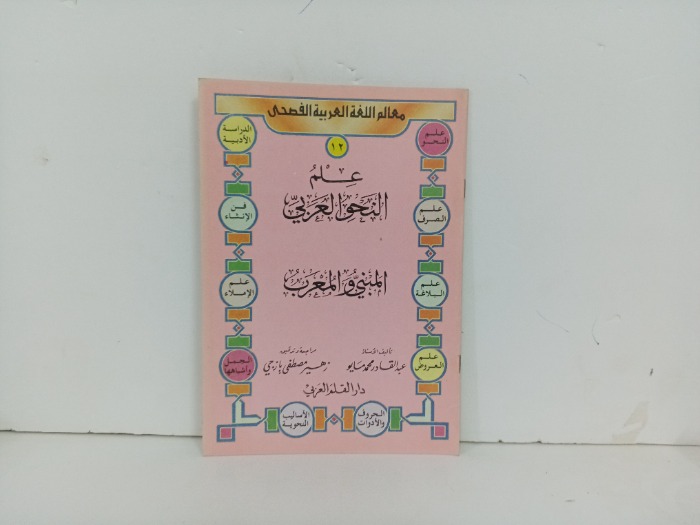 معالم اللغة العربية الفصحى
١٢
علم
النحو
الدراسة
الأدبية
عِلمُ
النَحوِ العَرَبيّ
علم
الصرف
فن
الإنشاء
المَبنيُّ وَالمُعْرَبُ
علم
البلاغة
علم
الإملاء
تأليف الأستاذ
مراجعة وتدقيق
عبد القادر محمد مايو
زهير مصطفى يازجي
علم
العروض
الجمل
وأشباهها
دار القلم العربي
الحروف
والأدوات
الأساليب
النحوية